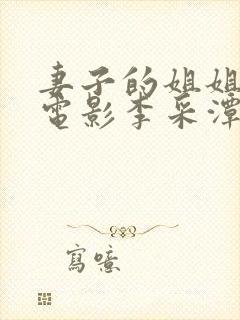 妻子的姐姐
電影李采潭
寫噫